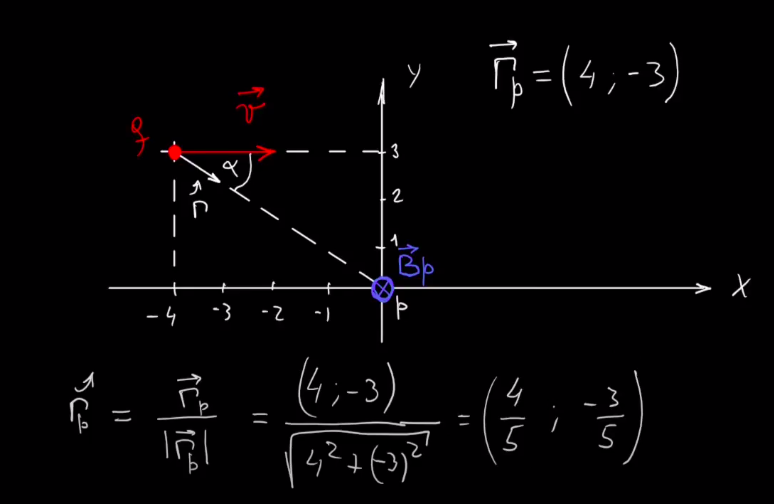 r⃗p = (4 ; -3)
y
v⃗
q
3
α
2
r̂
1
B⃗p
x
-4 -3 -2 -1 p
r̂p = r⃗p / |r⃗p| = (4 ; -3) / √(4² + (-3)²) = (4/5 ; -3/5)